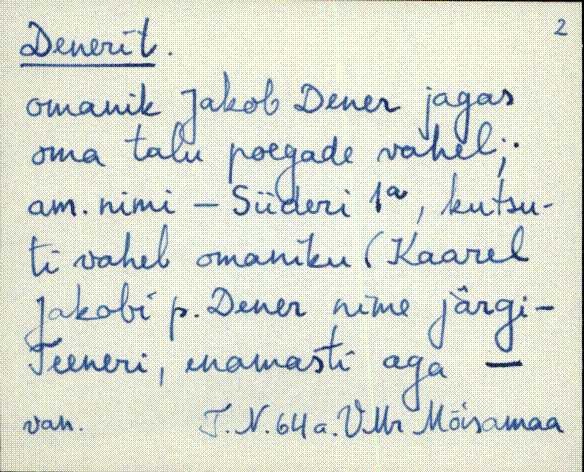 2
Denerit.
omanik Jakob Dener jagas
oma talu poegade vahel;
am. nimi – Süderi 1a, kutsu-
ti vahel omaniku (Kaarel
Jakobi p. Dener nime järgi –
Teeneri, enamasti aga —
van. J.N. 64 a. VMr Mõisamaa